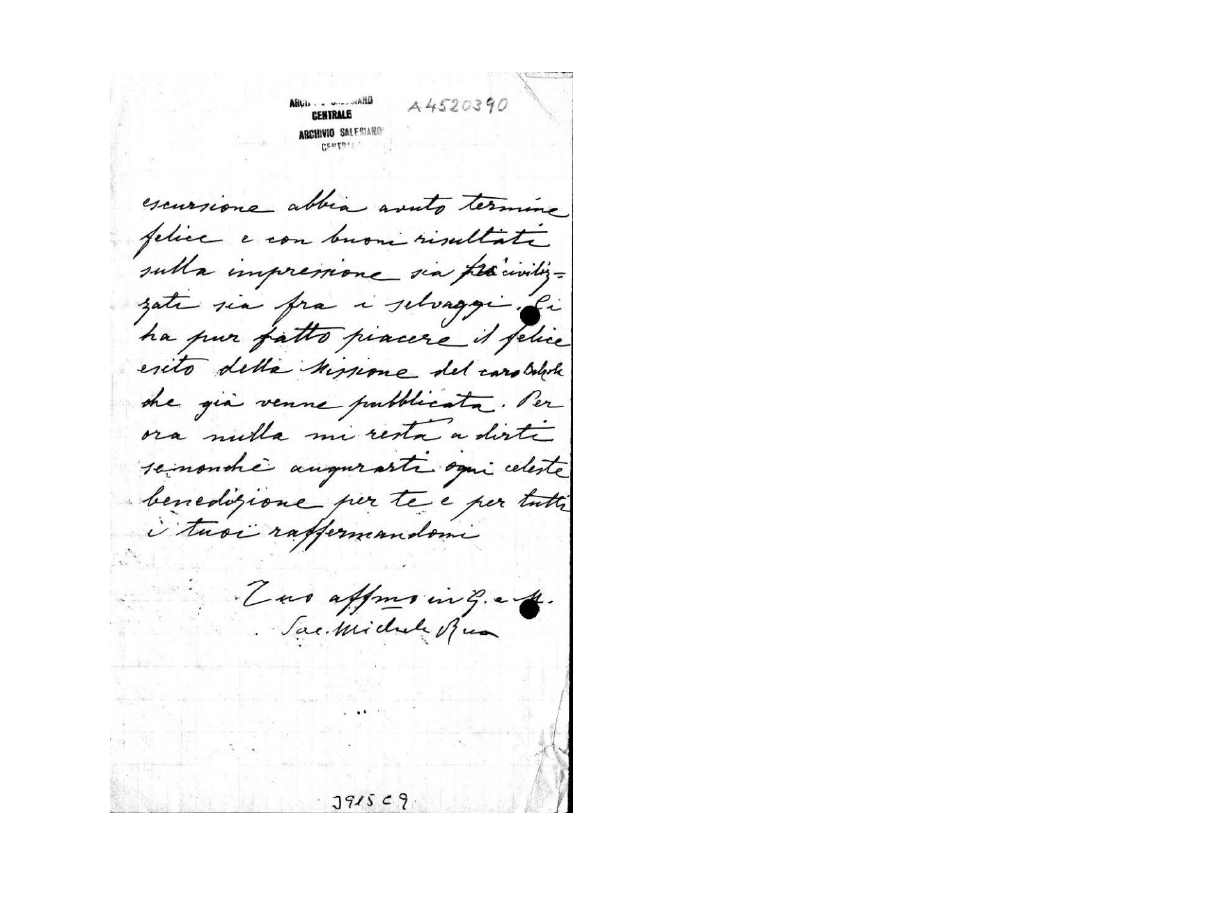 ARCHIVIO SALESIANO
CENTRALE
A4520390
ARCHIVIO SALESIANO
CENTRALE
escursione abbia avuto termine
felice e con buoni risultati
sulla impressione sia fra i civiliz=
zati sia fra i selvaggi. Ci
ha pur fatto piacere il felice
esito della Missione del caro
che già venne pubblicata. Per
ora nulla mi resta a dirti
senonchè augurarti ogni celeste
benedizione per te e per tutti
i tuoi raffermandomi
Tuo affmo in G. e M.
Sac. Michele Rua
J915C9